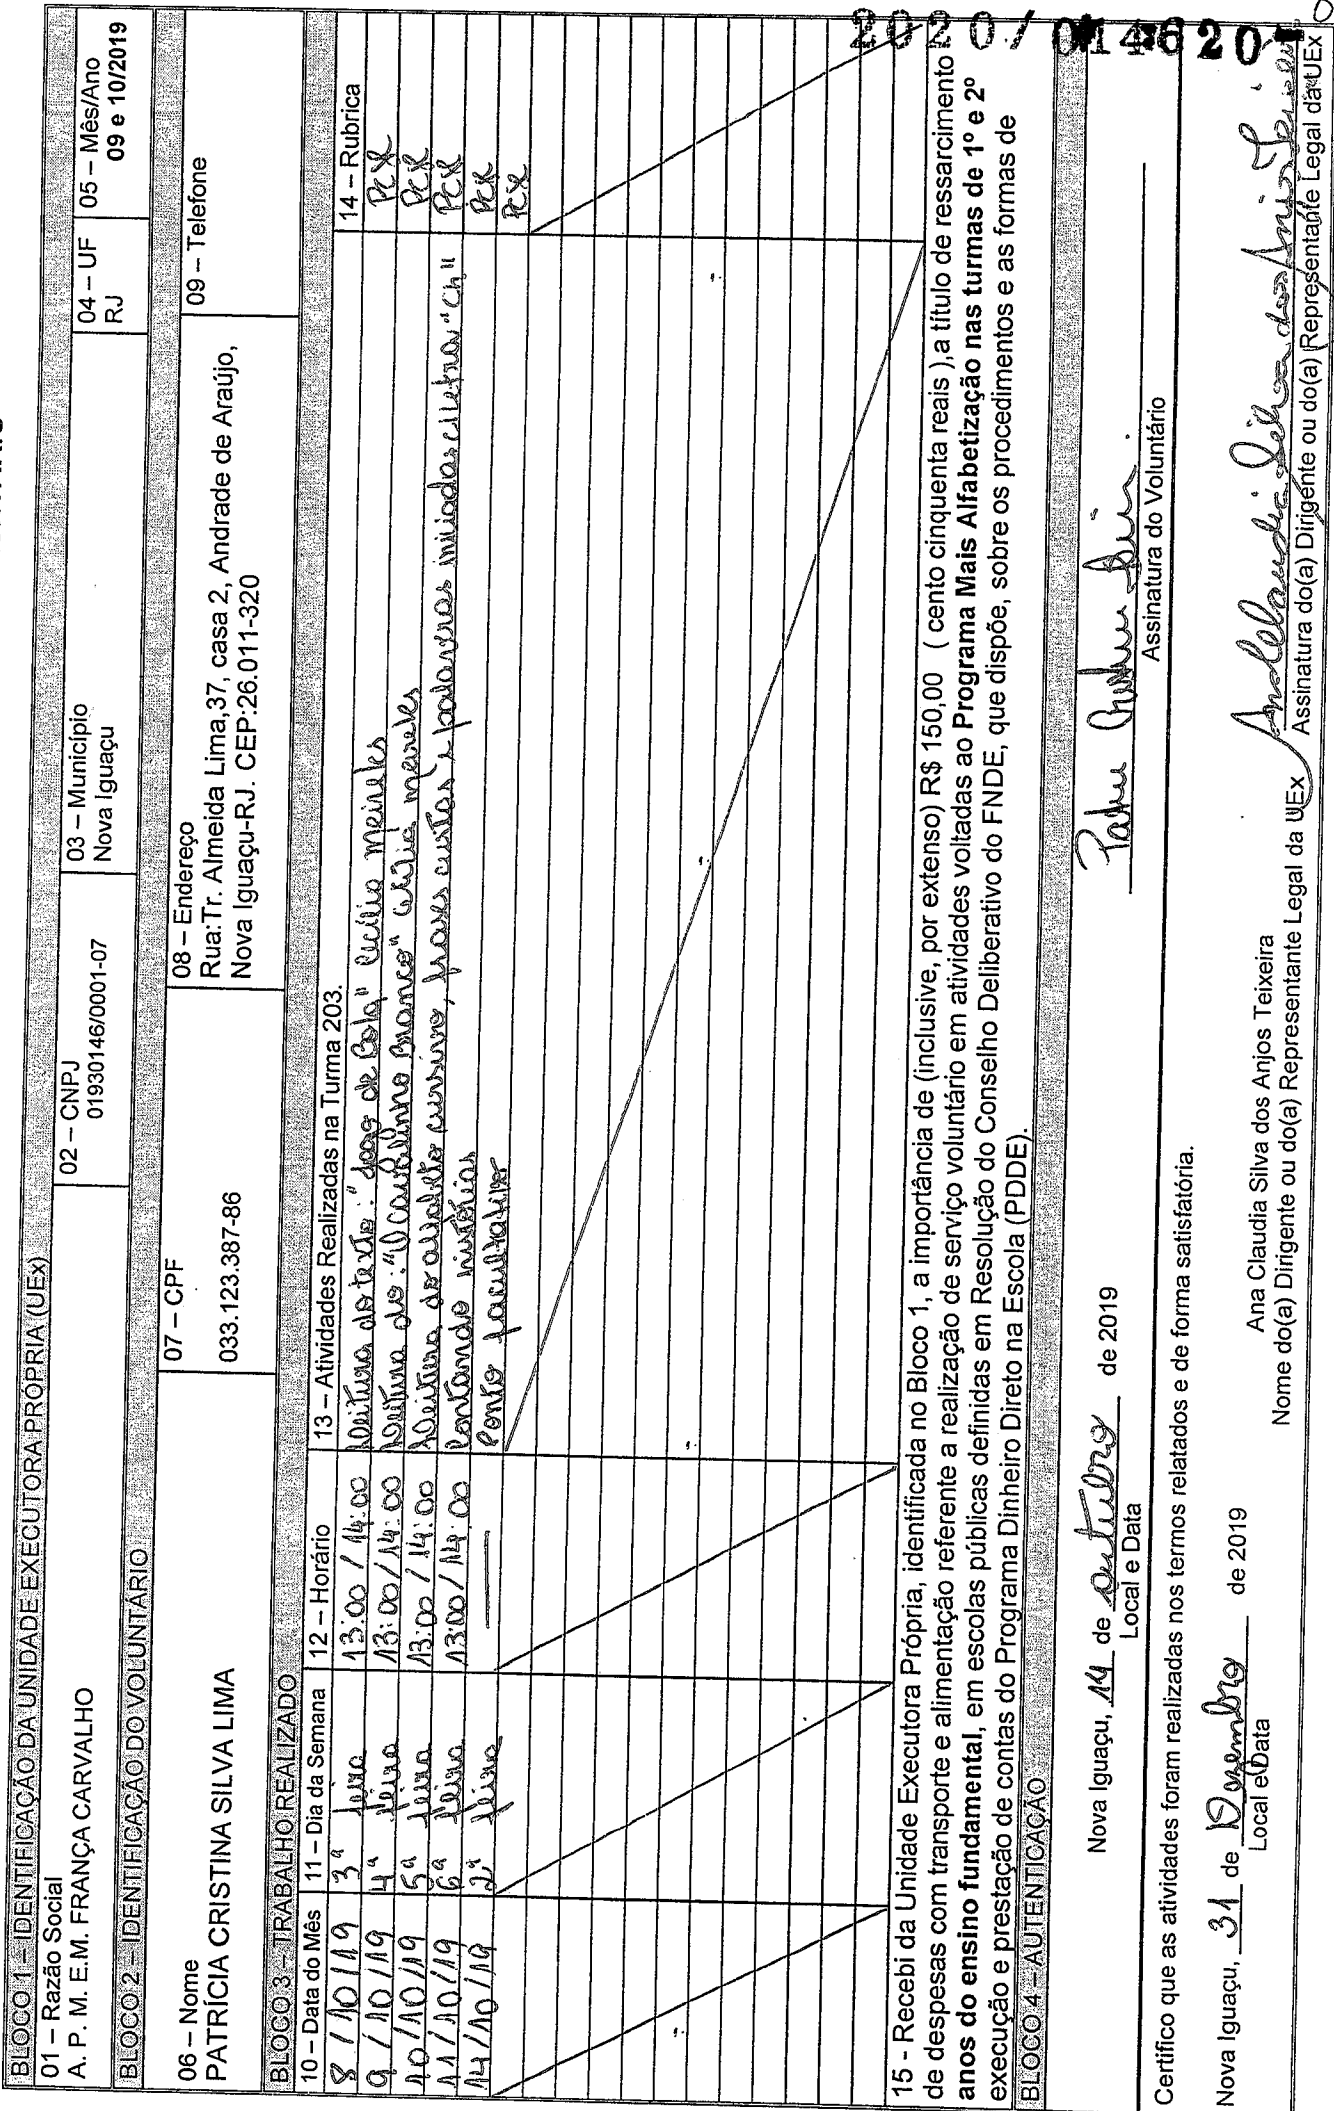 2020/014620
BLOCO 1 – IDENTIFICAÇÃO DA UNIDADE EXECUTORA PRÓPRIA (UEx)
01 – Razão Social
A. P. M. E.M. FRANÇA CARVALHO
02 – CNPJ
01930146/0001-07
03 – Município
Nova Iguaçu
04 – UF
RJ
05 – Mês/Ano
09 e 10/2019
BLOCO 2 – IDENTIFICAÇÃO DO VOLUNTÁRIO
06 – Nome
PATRÍCIA CRISTINA SILVA LIMA
07 – CPF
033.123.387-86
08 – Endereço
Rua:Tr. Almeida Lima,37, casa 2, Andrade de Araújo,
Nova Iguaçu-RJ. CEP:26.011-320
09 – Telefone
BLOCO 3 – TRABALHO REALIZADO
10 – Data do Mês 11 – Dia da Semana 12 – Horário 13 – Atividades Realizadas na Turma 203. 14 – Rubrica
8/10/19 3ª feira 13:00/14:00 Leitura do texto: "Jogo de Bola" Cecília Meireles
9/10/19 4ª feira 13:00/14:00 Leitura do: "O cavalinho Branco" Cecília meireles
10/10/19 5ª feira 13:00/14:00 Leitura do alfabeto cursivo, frases curtas e palavras iniciadas c/letra "Ch"
11/10/19 6ª feira 13:00/14:00 Contando histórias
14/10/19 2ª feira Ponto facultativo
15 - Recebi da Unidade Executora Própria, identificada no Bloco 1, a importância de (inclusive, por extenso) R$ 150,00 ( cento cinquenta reais ),a título de ressarcimento
de despesas com transporte e alimentação referente a realização de serviço voluntário em atividades voltadas ao Programa Mais Alfabetização nas turmas de 1º e 2º
anos do ensino fundamental, em escolas públicas definidas em Resolução do Conselho Deliberativo do FNDE, que dispõe, sobre os procedimentos e as formas de
execução e prestação de contas do Programa Dinheiro Direto na Escola (PDDE).
BLOCO 4 – AUTENTICAÇÃO
Nova Iguaçu, 14 de outubro de 2019
Local e Data
Assinatura do Voluntário
Certifico que as atividades foram realizadas nos termos relatados e de forma satisfatória.
Nova Iguaçu, 31 de Dezembro de 2019
Local e Data
Ana Claudia Silva dos Anjos Teixeira
Nome do(a) Dirigente ou do(a) Representante Legal da UEx
Assinatura do(a) Dirigente ou do(a) Representante Legal da UEx